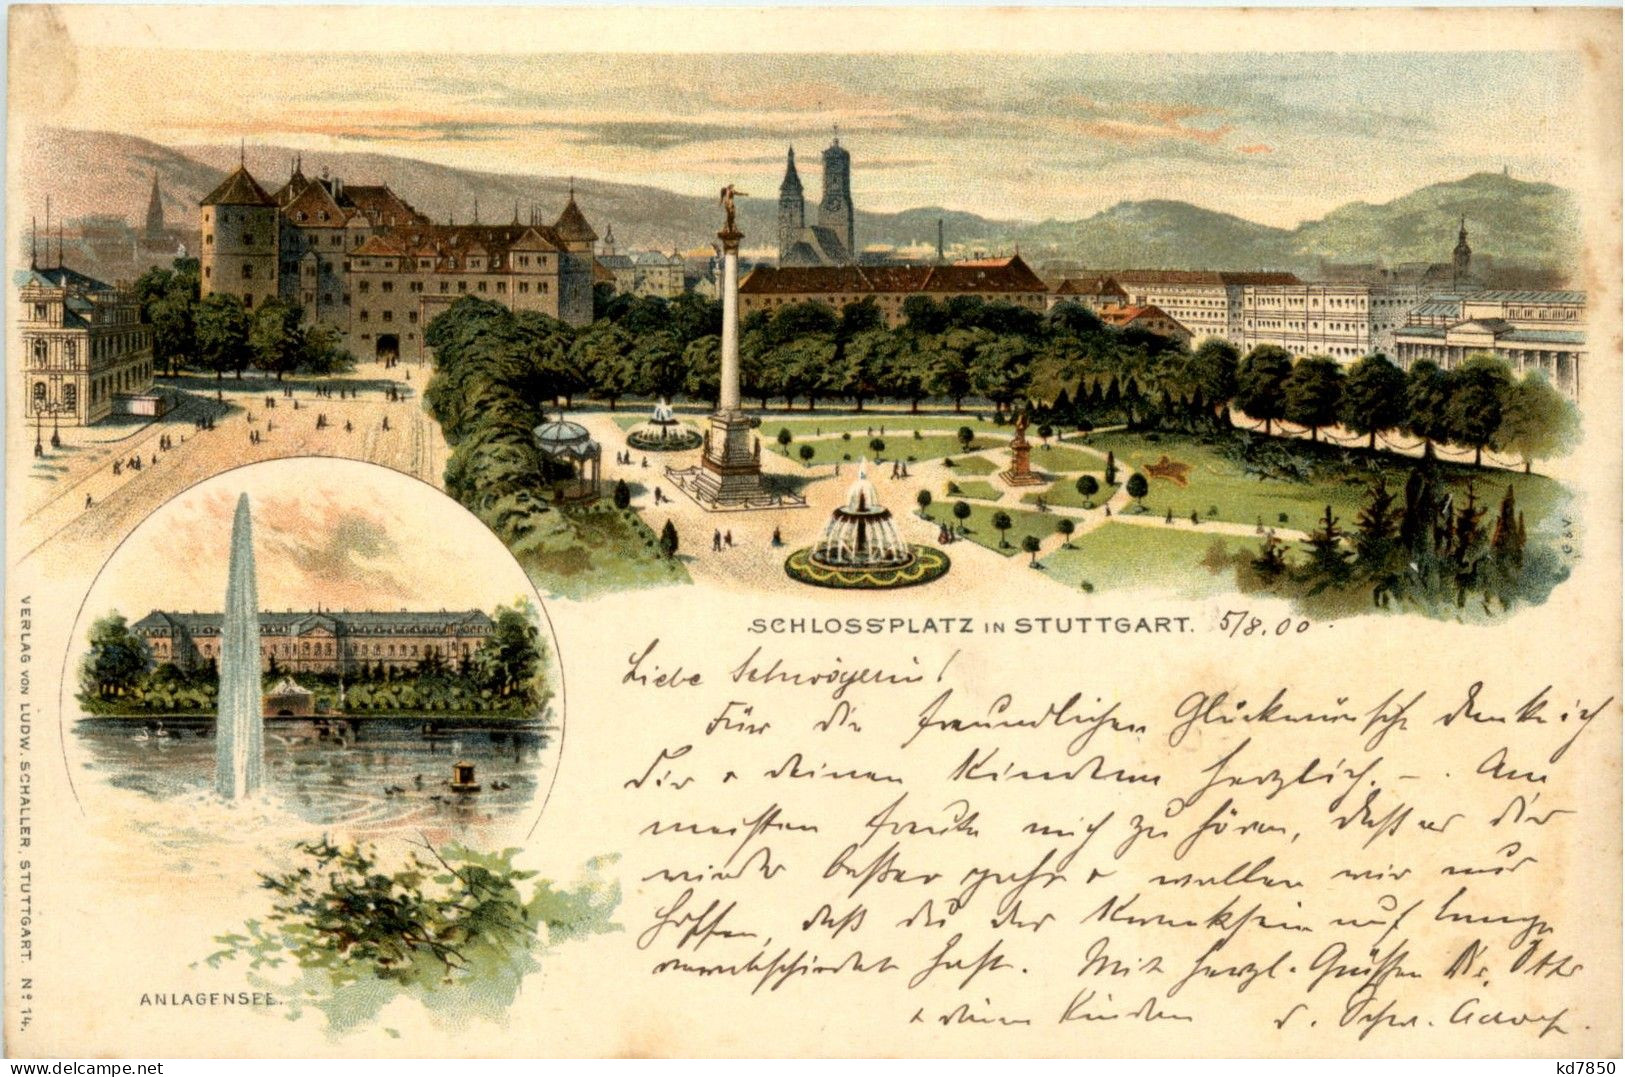 SCHLOSSPLATZ IN STUTTGART. 5/8.00.
Liebe Schwägerin!
Für die freundlichen Glückwünsche danke ich
Dir + deinen Kindern herzlich. – Am
meisten freute mich zu hören, daß es dir
wieder besser geht + wollen wir nur
hoffen, daß du der Krankheit auf lange
verabschiedet hast. Mit herzl. Grüßen Dir,
+ deinen Kindern d. Schw.
ANLAGENSEE.
VERLAG VON LUDW. SCHALLER, STUTTGART. No 14.
G & V.
www.delcampe.net
kd7850